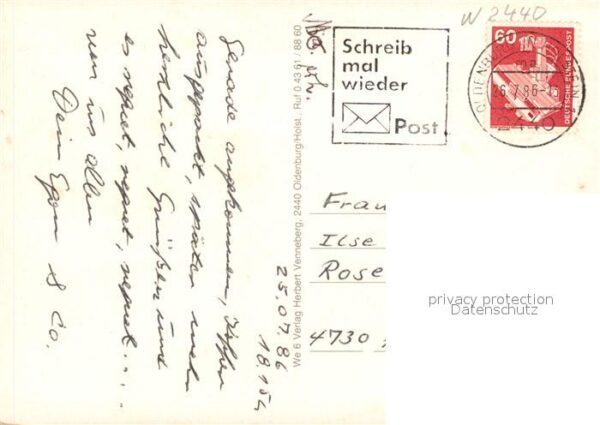 W 2440
Gerade angekommen, Koffer
ausgepackt, später mehr
herzliche Grüße und
es regnet, regnet, regnet...
von uns allen
Dein Egon & Co.
25.07.86
18.15h
We 6 Verlag Herbert Venneberg, 2440 Oldenburg/Holst., Ruf 0 43 61 / 88 60
Schreib
mal
wieder
Post
60
DEUTSCHE BUNDESPOST
26.7.86
2440
Frau
Ilse
Rose
4730
privacy protection
Datenschutz